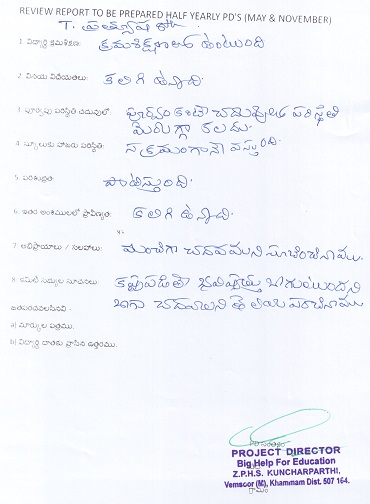 REVIEW REPORT TO BE PREPARED HALF YEARLY PD'S (MAY & NOVEMBER)
T. ప్రత్యూష 8th
1. విద్యార్థి క్రమశిక్షణ: క్రమశిక్షణలో ఉంటుంది
2. వినయ విధేయతలు: కలిగి ఉన్నది.
3. పూర్వపు పరిస్థితి చదువులో: పూర్వం కంటె చదువులో పరిస్థితి
మెరుగ్గా కలదు.
4. స్కూలుకు హాజరు పరిస్థితి: సక్రమంగానే వస్తుంది.
5. పరిశుభ్రత: పాటిస్తుంది.
6. ఇతర అంశములలో ప్రావీణ్యత: కలిగి ఉన్నది.
7. అభిప్రాయాలు / సలహాలు: మంచిగా చదవమని సూచించినాము.
8. కమిటీ సభ్యుల సూచనలు: కష్టపడితే భవిష్యత్తు బాగుంటుందని
బాగా చదవాలని తెలియపరచినాము
జతపరచవలసినవి -
a) మార్కుల పత్రము.
b) విద్యార్థి దాతకు వ్రాసిన ఉత్తరము.
PD సంతకం
PROJECT DIRECTOR
Big Help For Education
Z.P.H.S. KUNCHARPARTHI,
Vemsoor (M), Khammam Dist. 507 164.
గ్రామం